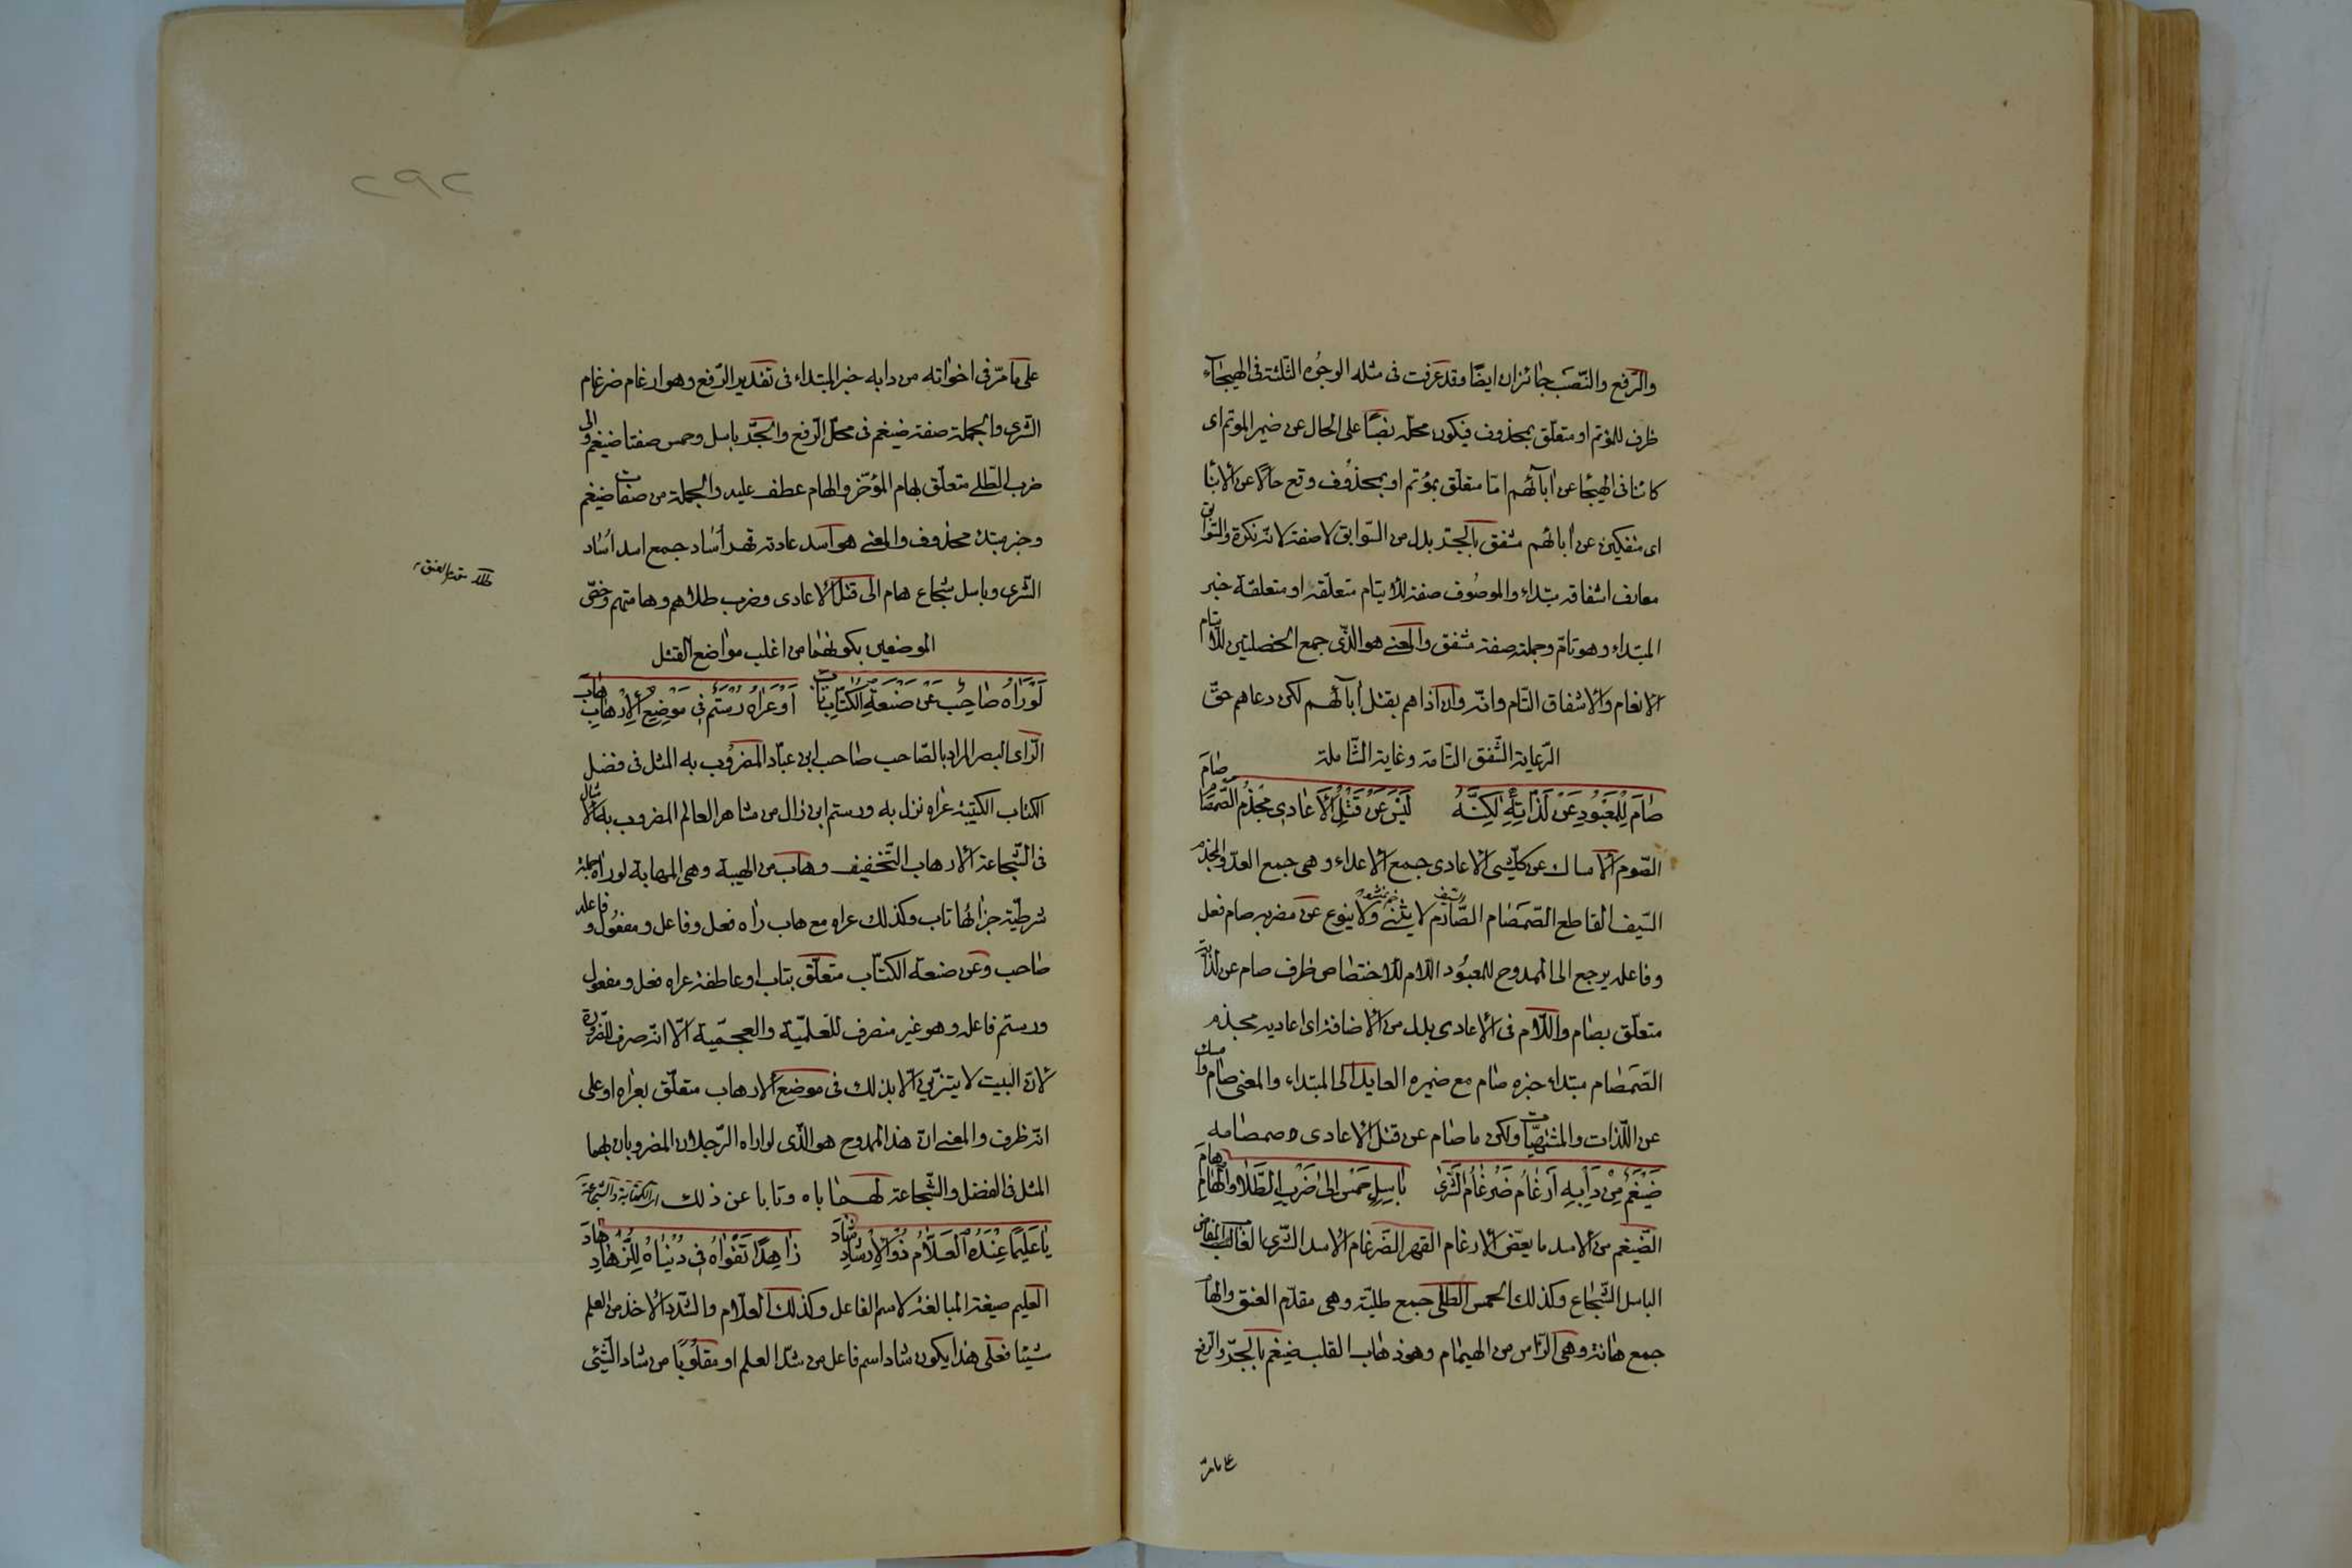 والرّفع والنّصب جائزان ايضًا وقد عرفت فى مثله الوجوه الثلثة فى الهيجاء
ظرف للمؤتم او متعلّق بمحذوف فيكون محلّه نصبًا على الحال عن ضمير الموتم اى
كائنا فى الهيجا عن آبائهم امّا متعلّق بمؤتم او بمحذوف وقع حالًا عن الابنا
اى منفكين عن آبائهم مشفق بالجرّ بدل من السّوابق لا صفة لانّه نكرة والسّوابق
معارف اشفاقه مبتداء والموصوف صفة للايتام متعلّقة او متعلقه خبر
المبتداء وهو تامّ وجملة صفة مشفق والمعنى هو الذى جمع الخصلتين للايتام
الانعام والاشفاق التام وانّه وان آذاهم بقتل آبائهم لكن دعاهم حقّ
الرّعاية الشّفق التامة وغاية الشّاملة
صَامَ لِلْمَعْبُودِ عَنْ لَذَّاتِهِ لٰكِنَّهُ لَيْسَ عَنْ قَتْلِ الْأَعَادِى مِجْذَمُ الصَّمْصَامِ صَامَ
الصّوم الامساك عن كلّ شئ الاعادى جمع الاعداء وهى جمع العدوّ المجذم
السّيف القاطع الصّمصام الصّارم لا ينثنى ولا ينبوع عن مضربه صام فعل
وفاعله يرجع الى الممدوح للمعبود اللام للاختصاص ظرف صام عن لذّاته
متعلّق بصام واللّام فى الاعادى بدل من الاضافة اى اعاديه مجذم
الصّمصام مبتداء خبره صام مع ضميره العايد الى المبتداء والمعنى صام وامسك
عن اللّذات والمشتهيات ولكن ما صام عن قتل الاعادى صمصامه
ضَيْغَمٌ مِنْ دَأْبِهِ اَرْغَامُ ضَرْغَامِ الشَّرٰى بَاسِلٍ حَمْسٍ اِلٰى ضَرْبِ الطُّلَا وَالْهَامِ هَامَ
الضّيغم من الاسد ما يعضّ الارغام القهر الضّرغام الاسد الشّرى الغالب
الباسل الشّجاع وكذلك الحمس الطلى جمع طلية وهى مقدّم العنق والهام
جمع هامة وهى الرّاس من الهيمام وهو ذهاب القلب ضيغم بالجرّ والرّفع
على ما مرّ
على ما مرّ فى اخواته من دابه خبر المبتداء فى تقدير الرّفع وهو ارغام ضرغام
الشّرى والجملة صفة ضيغم فى محلّ الرّفع والجرّ باسل وحمس صفتا ضيغم والى
ضرب الطّلى متعلّق بهام المؤخّر والهام عطف عليه والجملة من صفات ضيغم
وخبر مبتداء محذوف والمعنى هو اسد عادته قهر آساد جمع اسد آساد
الشّرى وباسل شجاع هام الى قتل الاعادى وضرب طلاهم وهامتهم وخصّ
الموضعين بكونهما من اغلب مواضع القتل
لَوْ رَاٰهُ صَاحِبٌ عَنْ صَنْعَةِ الْكُتَّابِ تَابَ اَوْ عَرَاهُ رُسْتَمٌ فِى مَوْضِعِ الْاِرْهَابِ هَابَ
الرّاى البصر المراد بالصّاحب صاحب ابن عبّاد المضروب به المثل فى فضل
الكتاب الكتيبة عراه نزل به ورستم ابن زال من مشاهر العالم المضروب به الامثال
فى الشّجاعة الارهاب التّخفيف وهاب من الهيبة وهى المهابة لو راه جملة
شرطيّة جزائها تاب وكذلك عراه مع هاب راه فعل وفاعل ومفعول وفاعله
صاحب وعن صنعة الكتّاب متعلّق بتاب او عاطفة عراه فعل ومفعول
ورستم فاعله وهو غير منصرف للعلميّة والعجميّة الّا انّه صرف للضّرورة
لانّ البيت لا يتزن الّا بذلك فى موضع الارهاب متعلّق بعراه او على
انّه ظرف والمعنى انّ هذا الممدوح هو الّذى لو راه الرّجلان المضروبان بهما
المثل فى الفضل والشّجاعة لهابا اياه وتابا عن ذلك اى الكتابة والشّجاعة
يَا عَلِيمًا عِنْدَهُ الْعَلَّامُ ذُو الْاِرْشَادِ شَادَ زَاهِدًا تَقْوَاهُ فِى دُنْيَاهُ لِلزُّهَّادِ هَادَ
العليم صيغة المبالغة لاسم الفاعل وكذلك العلّام والشّدّ الاخذ من العلم
شيئا فعلى هذا يكون شاد اسم فاعل من شدّ العلم او مقلوبًا من شاد الشّئ
٢٩٢
طلا مقدم العنق